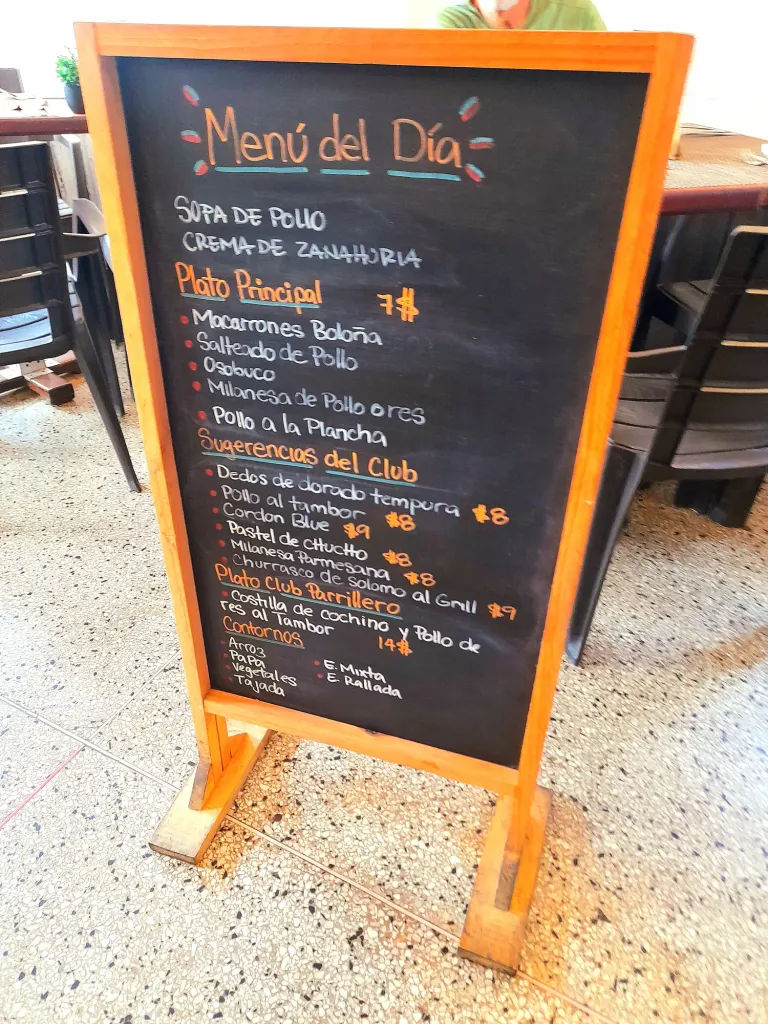 Menú del Día
SOPA DE POLLO
CREMA DE ZANAHORIA
Plato Principal 7$
• Macarrones Boloña
• Salteado de Pollo
• Osobuco
• Milanesa de Pollo o res
• Pollo a la Plancha
Sugerencias del Club
• Dedos de dorado tempura $8
• Pollo al tambor $8
• Cordon Blue $9
• Pastel de CHUCHO $8
• Milanesa Parmesana $8
• Churrasco de solomo al Grill $9
Plato Club Parrillero
• Costilla de cochino y Pollo de
res al Tambor 14$
Contornos
• Arroz
• Papa
• Vegetales
• Tajada
• E. Mixta
• E. Rallada